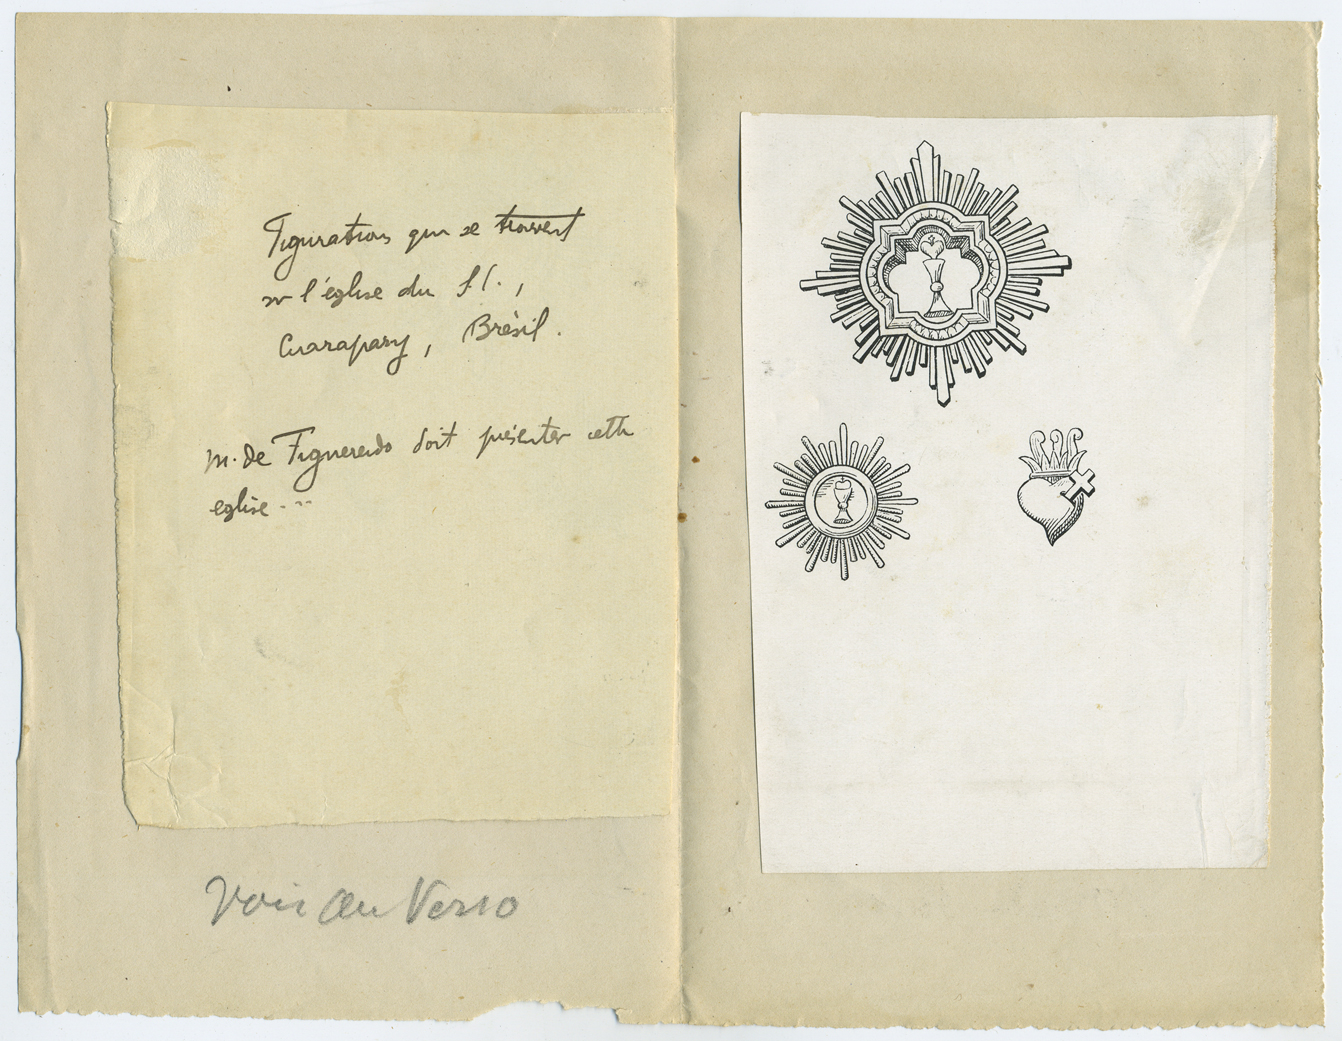 Figurations qui se trouvent
sr l'église du S.C.,
Guarapary, Brésil.
M. de Figueredo doit présenter cette
eglise ...
Voir au Verso